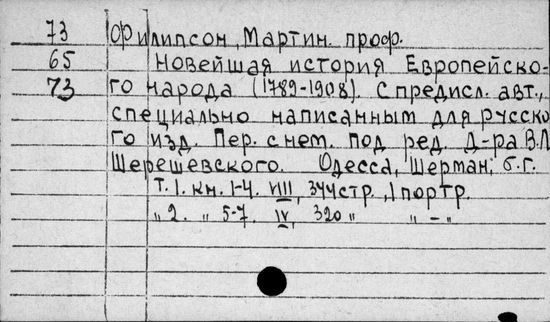 73 Филипсон, Мартин. проф.
65 Новейшая история Европейско-
73 го народа (1789-1908). С предисл. авт.,
специально написанным для русско
го изд. Пер. с нем. под ред. Д-ра В.Л
Шерешевского. Одесса, Шерман, б.г.
Т. 1. кн. 1-4. VIII, 344 стр., 1 портр.
„ 2. „ 5-7. IV, 320 „ „ - „